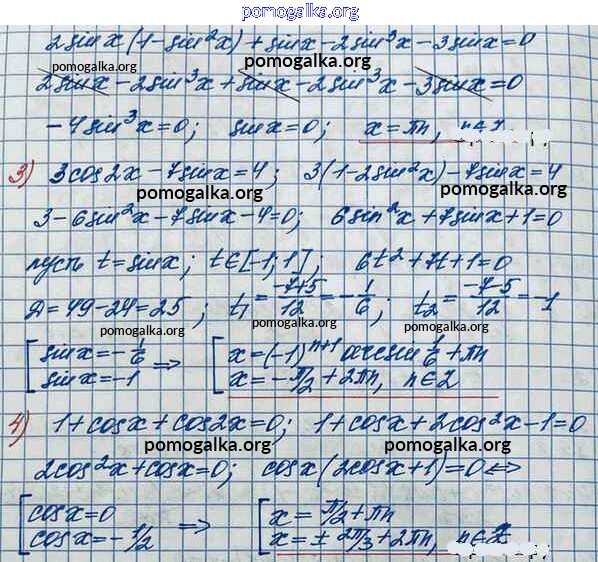 pomogalka.org
2sinx(1-sin²x)+sinx-2sin³x-3sinx=0
pomogalka.org pomogalka.org
2sinx-2sin³x+sinx-2sin³x-3sinx=0
-4sin³x=0; sinx=0; x=πn, n∈Z
3) 3cos2x-7sinx=4; 3(1-2sin²x)-7sinx=4
pomogalka.org pomogalka.org
3-6sin²x-7sinx-4=0; 6sin²x+7sinx+1=0
пусть t=sinx; t∈[-1;1]; 6t²+7t+1=0
Д=49-24=25; t₁=(-7+5)/12=-1/6; t₂=(-7-5)/12=-1
pomogalka.org pomogalka.org pomogalka.org
[sinx=-1/6 ⇒ [x=(-1)ⁿ⁺¹arcsin 1/6+πn
sinx=-1 x=-π/2+2πn, n∈Z
pomogalka.org
4) 1+cosx+cos2x=0; 1+cosx+2cos²x-1=0
pomogalka.org pomogalka.org
2cos²x+cosx=0; cosx(2cosx+1)=0⇔
[cosx=0 ⇒ [x=π/2+πn
cosx=-1/2 x=±2π/3+2πn, n∈Z
pomogalka.org pomogalka.org